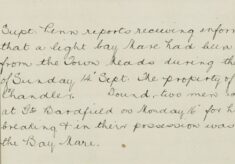 Supt. Lenn reports receiving inform
that a light bay Mare had been
from the Town Meads during th
of Sunday 14th Sept. The property of
Chandler Found, two men
at Gt. Bardfield on Monday 15th for h
breaking & in their possession was
the Bay Mare.